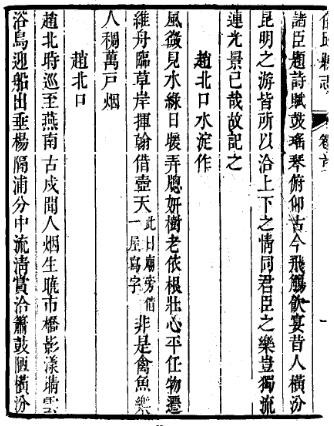 任邱縣志 卷首 一
諸臣題詩賦鼓瑤琴俯仰古今飛觴飲宴昔人橫汾
昆明之游皆所以洽上下之情同君臣之樂豈獨流
連光景已哉故記之
趙北口水淀作
風微見水綠日暖弄䳽妍樹老依根壯心平任物遷
維舟臨草岸揮翰借壺天此日廟旁借一屋寫字非是禽魚樂
人稠萬戸烟
趙北口
趙北時巡至燕南古戍間人烟生曉市橋影漾晴雲
浴鳥迎船出垂楊隔浦分中流清賞洽簫鼓陋橫汾